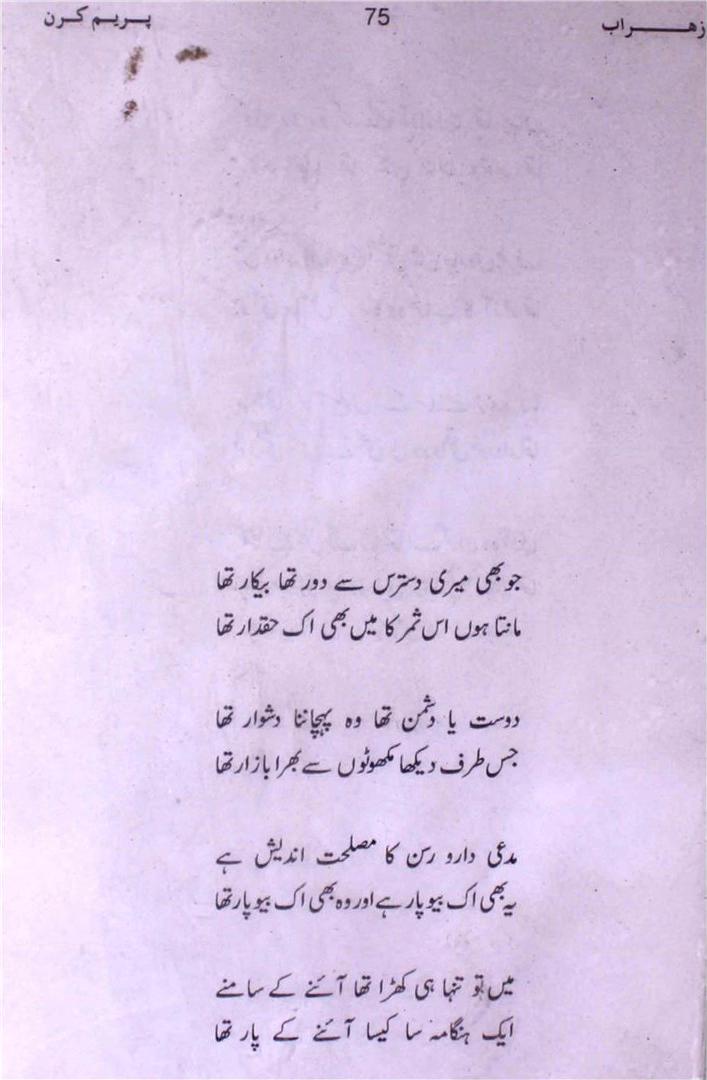 زهراب 75 پریم کرن
جو بھی میری دسترس سے دور تھا بیکار تھا
مانتا ہوں اس ثمر کا میں بھی اک حقدار تھا
دوست یا دشمن تھا وہ پہچاننا دشوار تھا
جس طرف دیکھا مکھوٹوں سے بھرا بازار تھا
مدعی دارو رسن کا مصلحت اندیش ہے
یہ بھی اک بیوپار ہے اور وہ بھی اک بیوپار تھا
میں تو تنہا ہی کھڑا تھا آئنے کے سامنے
ایک ہنگامہ سا کیسا آئنے کے پار تھا